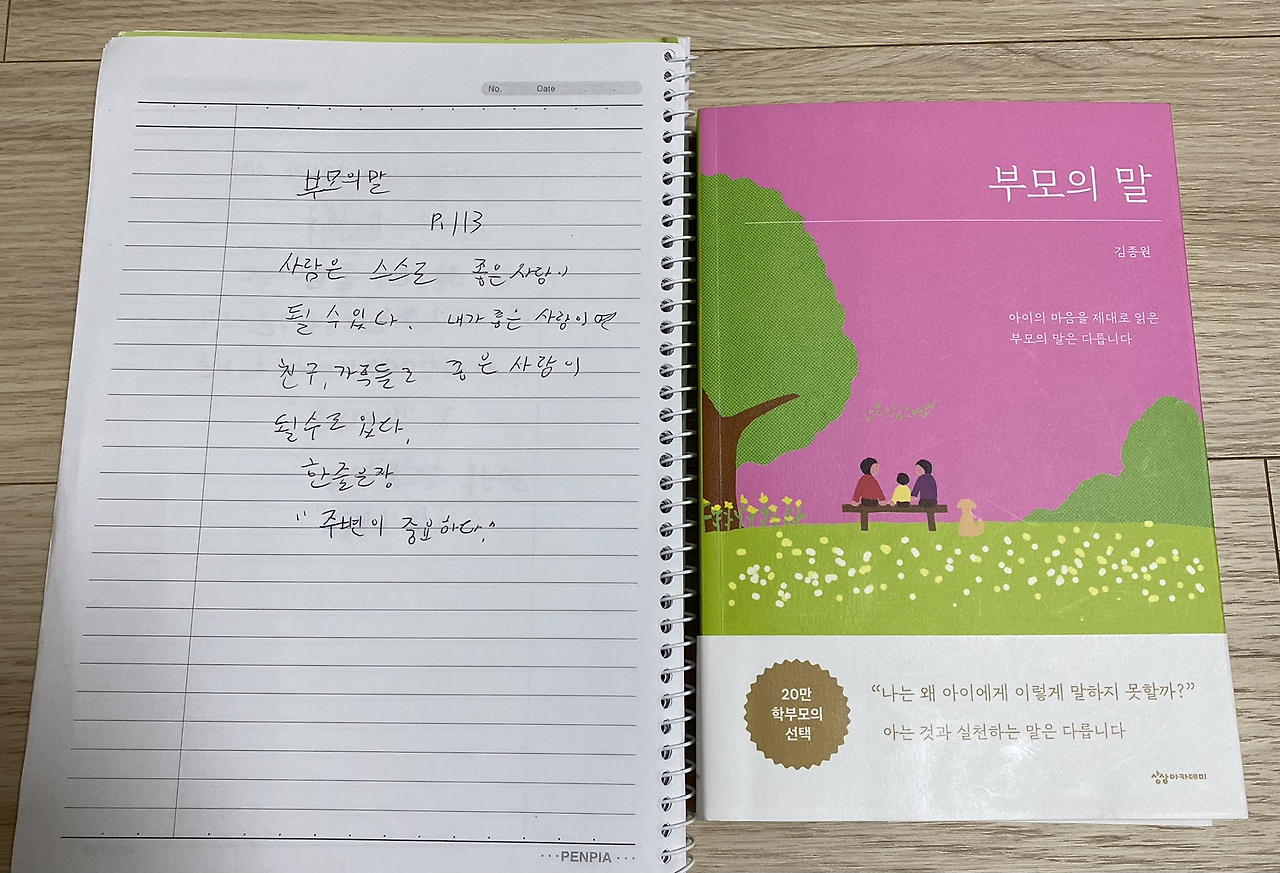 No. Date
부모의 말
P. 113
사람은 스스로 좋은 사람이
될 수 있다. 내가 좋은 사람이면
친구, 가족들도 좋은 사람이
될 수도 있다.
한줄문장
"주변이 중요하다."
PENPIA
부모의 말
김종원
아이의 마음을 제대로 읽은
부모의 말은 다릅니다
20만
학부모의
선택
“나는 왜 아이에게 이렇게 말하지 못할까?”
아는 것과 실천하는 말은 다릅니다
상상아카데미